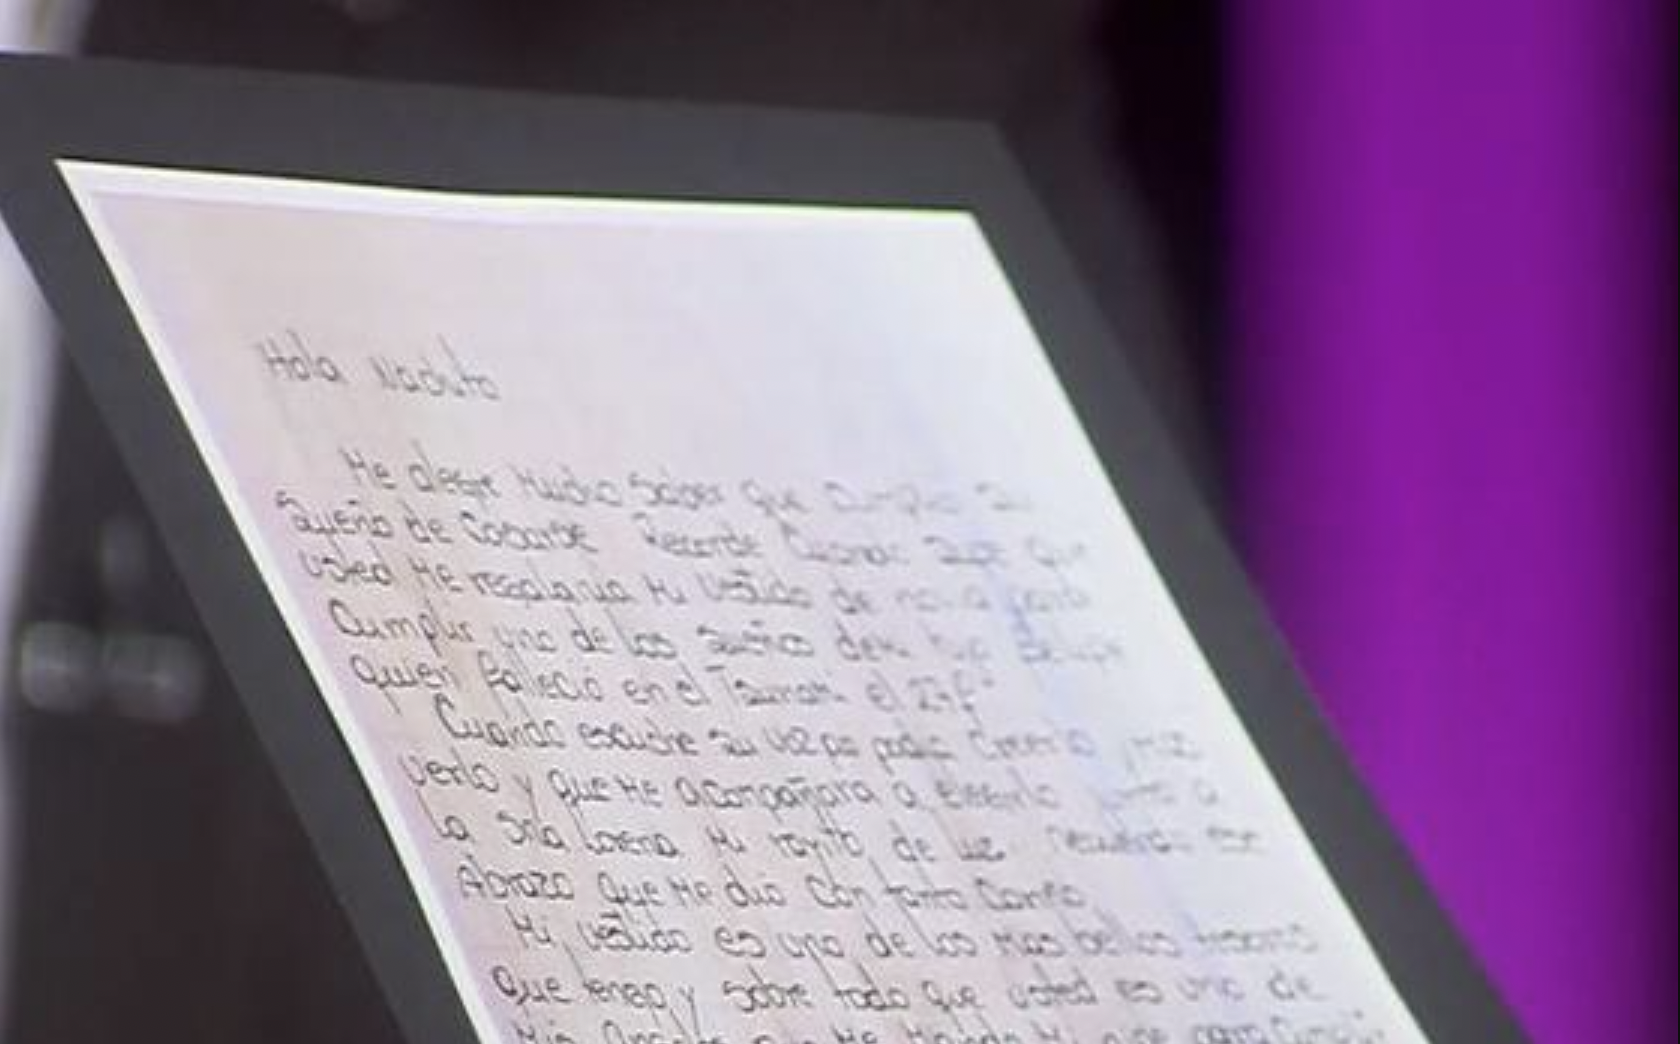 Hola Nachito
Me alegre Mucho Saber que Cumplio Su
Sueño de Cobarde Recorde Cuando Supe que
usted Me regalaria Mi Vestido de novia para
Cumplir uno de los Sueños de mi hija
quien falleció en el Tsunami el 27 F
Cuando escuche Su voz no podia Creerlo
verlo y que Me acompañara a elegirlo junto a
la Srta lorena Mi rayito de luz ese
Abrazo que Me dio Con tanto Cariño
Mi Vestido es uno de los Mas bellos tesoros
que tengo y Sobre todo que usted es uno de
Mis que Me Mando Mi para